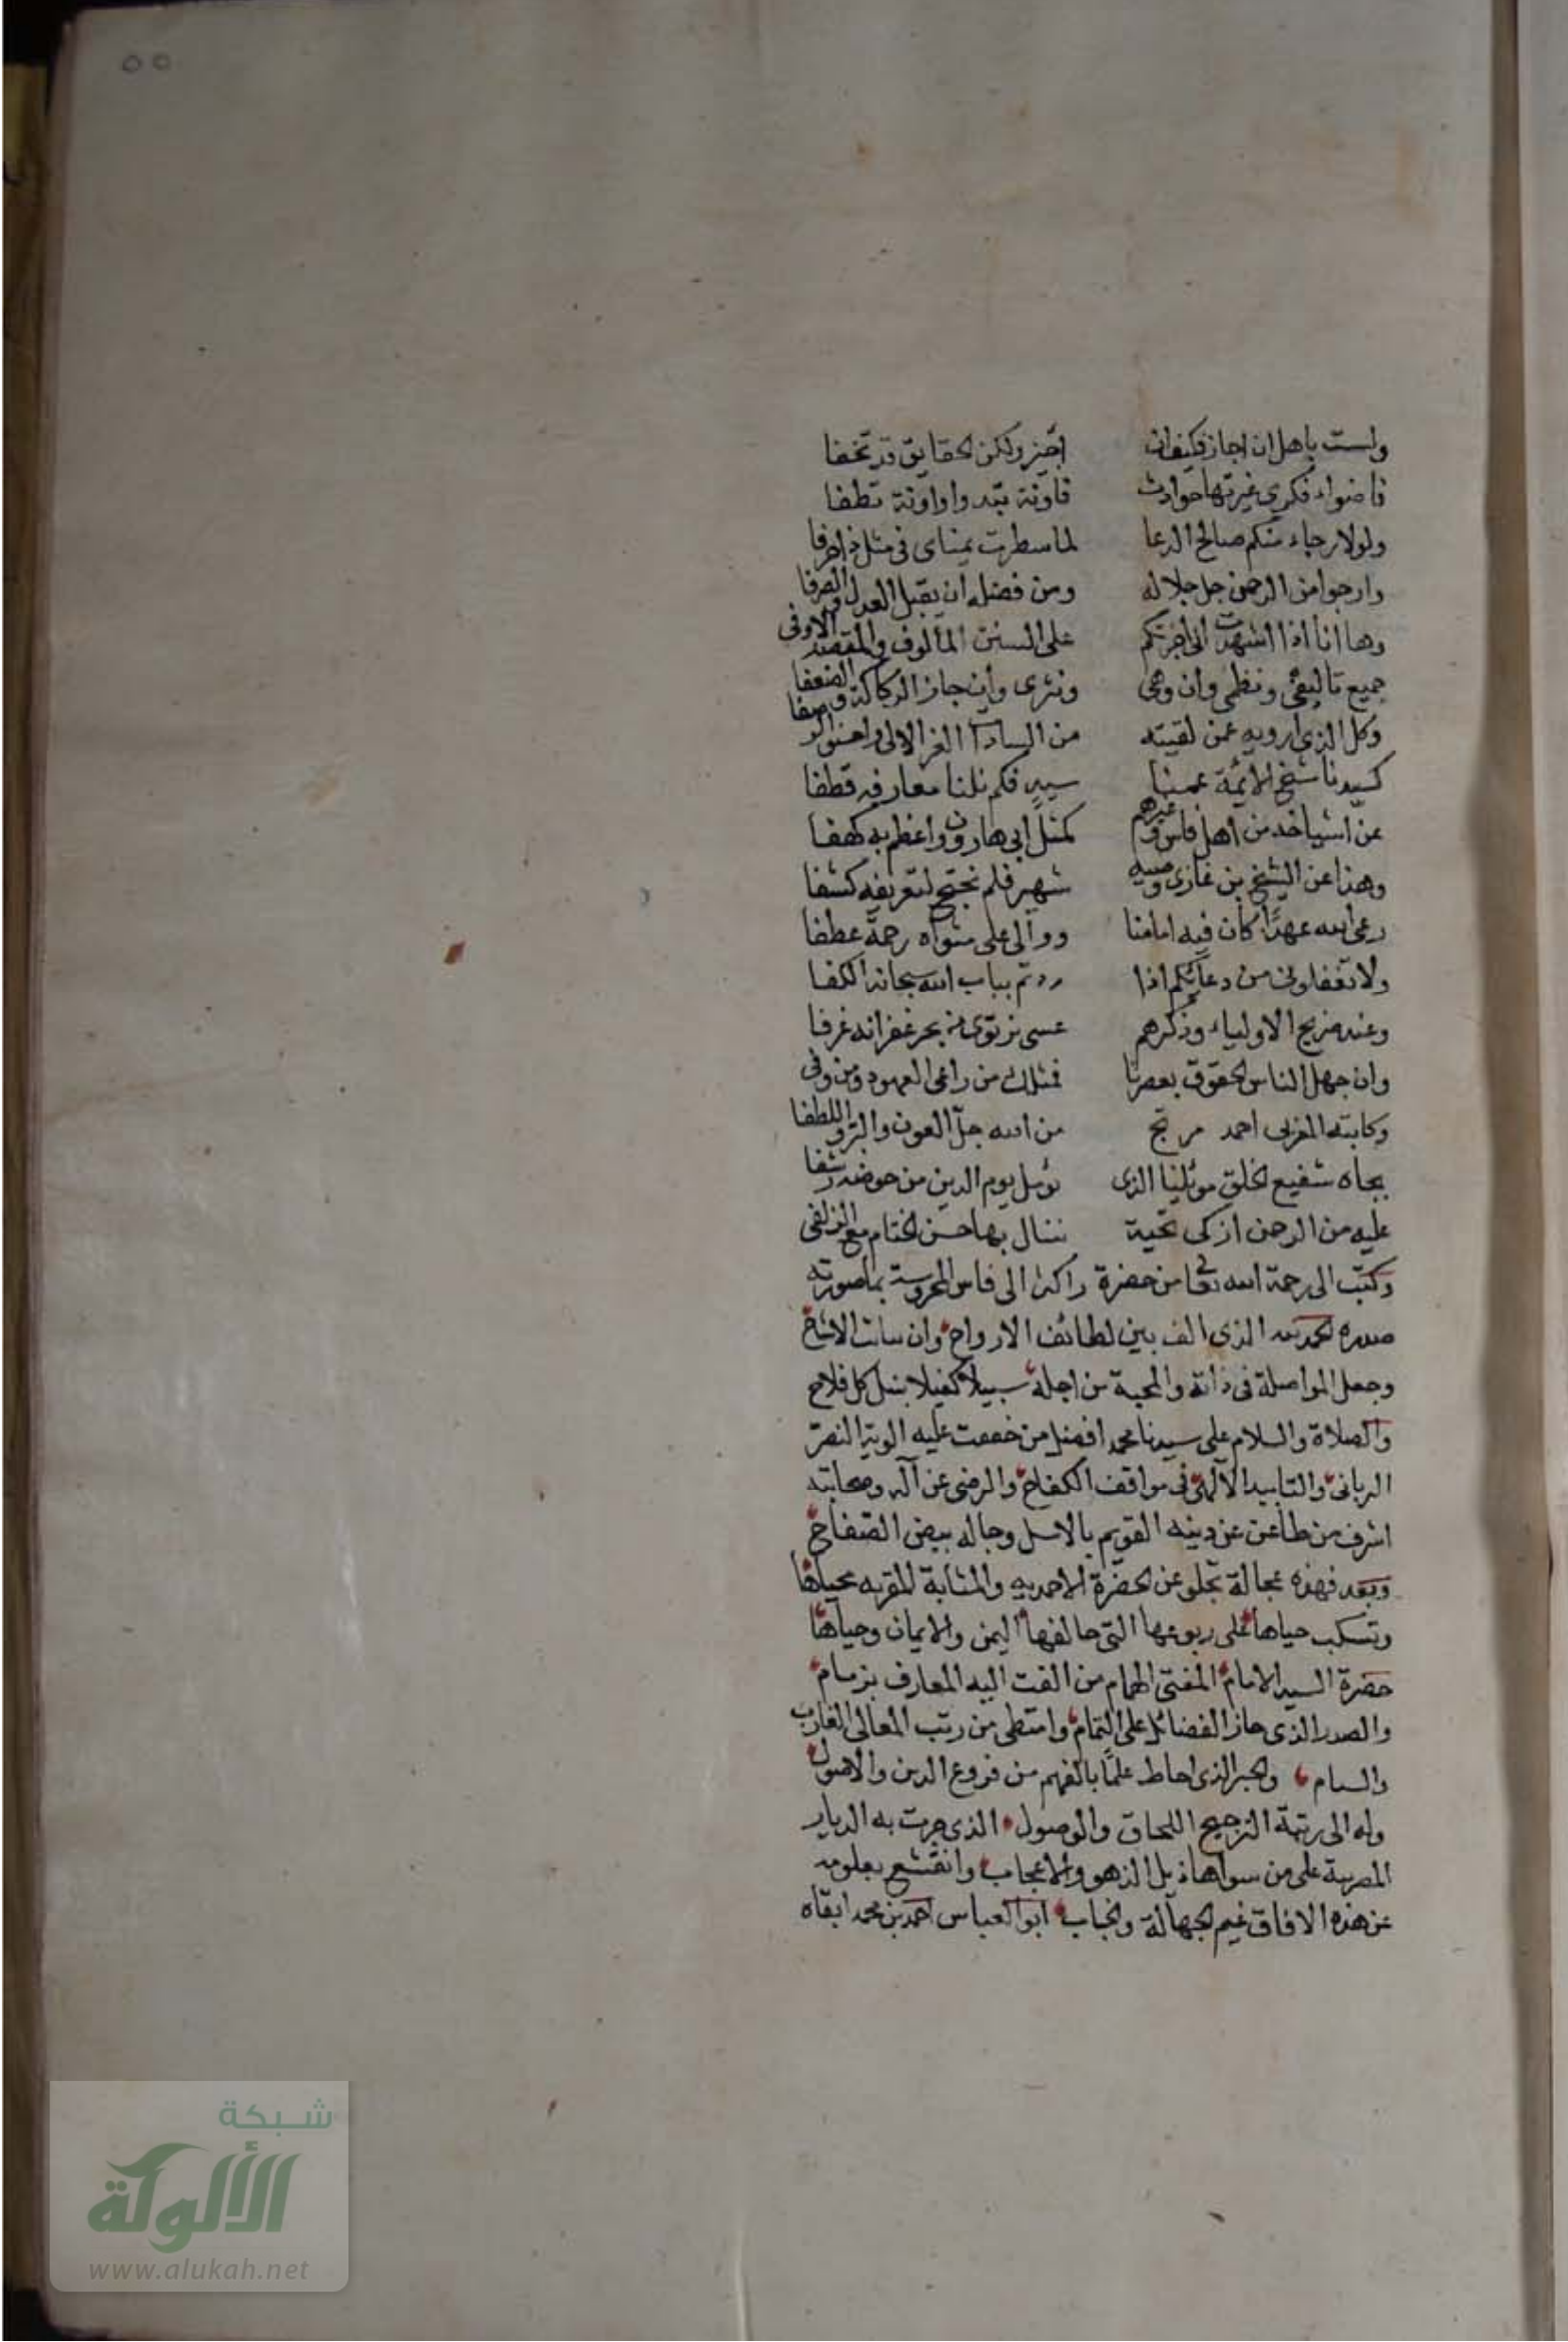 ٥٥
ولست باهل ان اجاز فكيف ان اجيز ولكن الحقايق قد تخفا
فاضواء فكري غيرتها حوادث فاونة تبدوا واونة تطفا
ولولا رجاء منكم صالح الدعا لما سطرت يمناى فى مثل ذا حرفا
وارجوا من الرحمن جل جلاله ومن فضله ان يقبل العدل والصرفا
وها انا اذا اشهدت انى اجزتكم على السنن المالوف والمقصد الاوفى
جميع تاليفى ونظمى وان وهى ونثرى وان جاز الركاكة والضعفا
وكل الذى ارويه عمن لقيته من السادا الغر الالى
كسيدنا شيخ الائمة عمنا سيد فكم نلنا معارفه قطفا
عن اشياخه من اهل فاس وغيرهم كمثل ابى هارون واعظم به كهفا
وهذا عن الشيخ بن غازى وصيه شهير فلم نحتج لتعريفه كشفا
رعى الله عهدًا كان فيه امامنا ووالى على مثواه رحمة عطفا
ولا تغفلونى من دعائكم اذا ردتم بباب الله سبحانه الكفا
وعند ضريح الاولياء وذكرهم عسى نرتوى من بحر غفرانه غرفا
وان جهل الناس الحقوق بعصرنا فمثلك من راعى العهود ومن وفى
وكاتبه المغربى احمد مرتج من الله جل العون والبر واللطفا
بجاه شفيع الخلق موئلنا الذى نؤمل يوم الدين من حوضه رشفا
عليه من الرحمن ازكى تحية ننال بها حسن الختام مع الزلفى
وكتب الى رحمة الله تعالى من حضرة راكش الى فاس المحروسة بما صورته
صدره الحمد لله الذى الف بين لطائف الارواح وان سات الاشباح
وجعل المواصلة فى ذاته والمحبة من اجله سبيلا كفيلا بنيل كل فلاح
والصلاة والسلام على سيدنا محمد افضل من خفقت عليه الوية النصر
الربانى والتاييد الآلهى فى مواقف الكفاح والرضى عن آله وصحابته
اشرف من طاعن عن دينه القويم بالاسل وجاله ببيض الصفاح
وبعد فهذه عجالة تجلو عن الحضرة الاحمديه والمثابة المقريه محياها
وتسكب حياها على ربوعها التى حالفها اليمن والايمان وحياها
حضرة السيد الامام المفتى الهمام من القت اليه المعارف بزمام
والصدر الذى حاز الفضائل على التمام وامتطى من رتب المعالى الغارب
والسنام والحبر الذى احاط علمًا بالفهم من فروع الدين والاصول
وله الى رتبة الترجيح اللحاق والوصول الذى جرت به الديار
المصرية على من سواها ذيل الزهو والاعجاب وانقشع بعلومه
عن هذه الافاق غيم الجهالة وانجاب ابو العباس احمد بن محمد ابقاه
شبكة
الألوكة
www.alukah.net